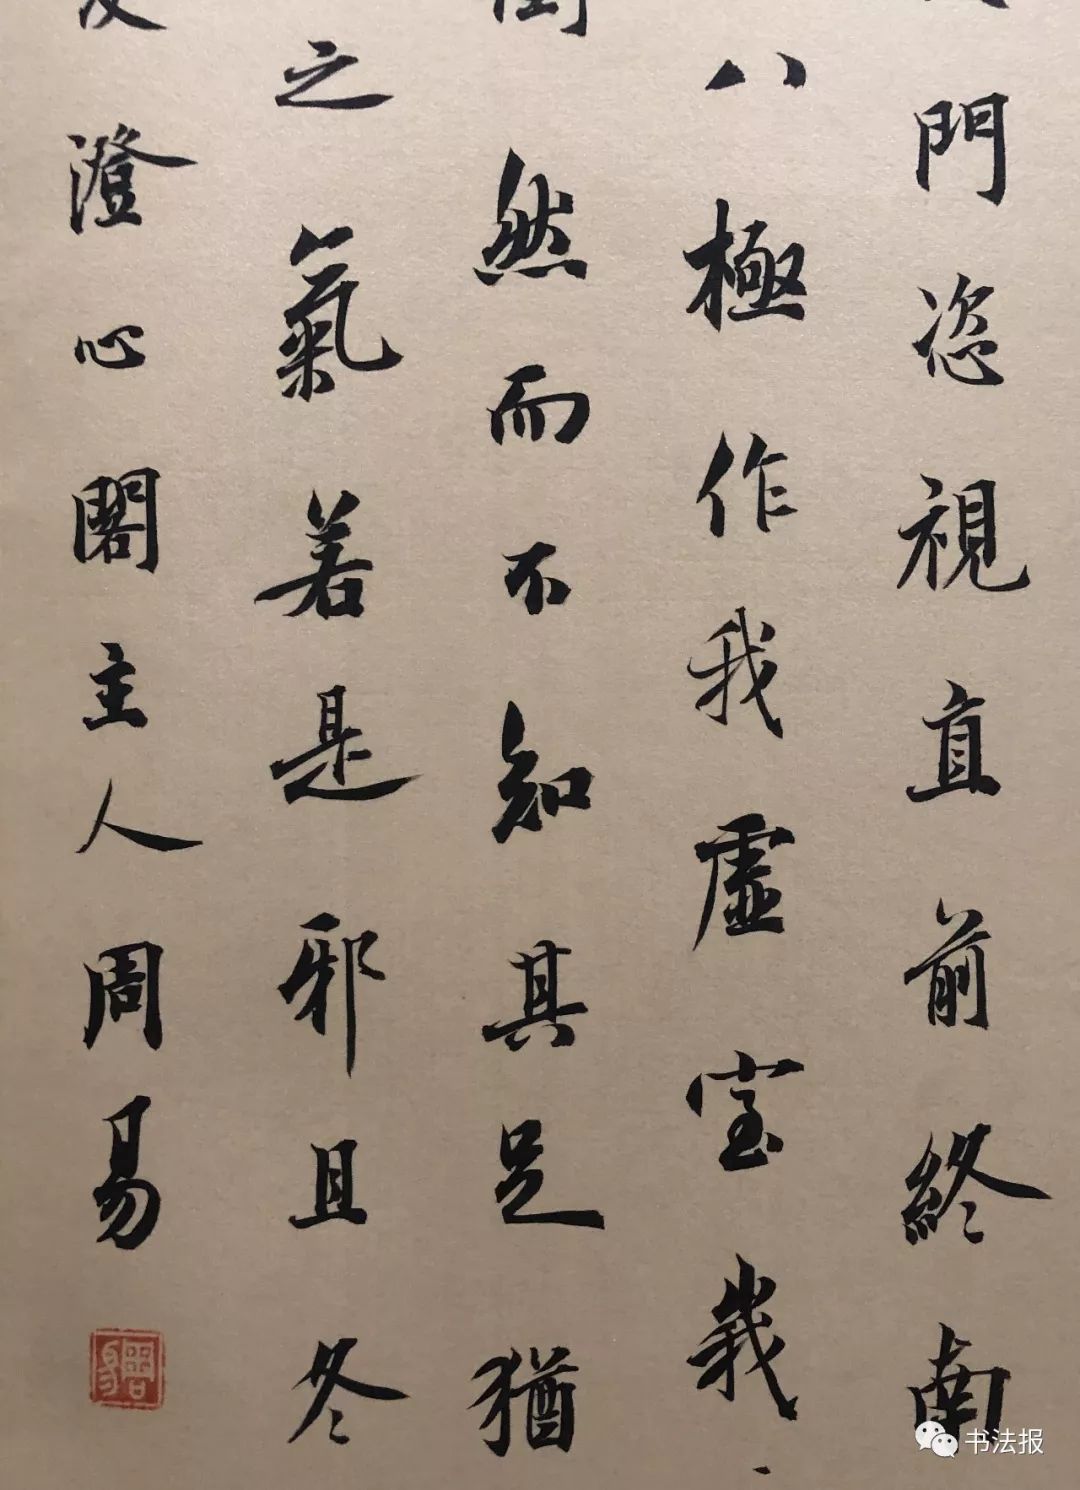 門恣視直前終南
八極作我虛室我
然而不知其足猶
之氣若是邪且冬
澄心閣主人周易
周易
书法报